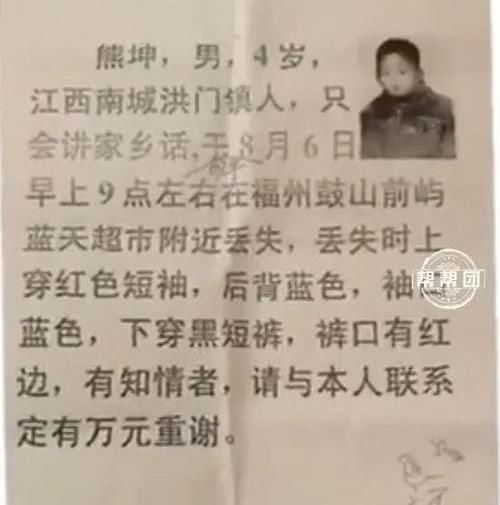 熊坤，男，4岁，
江西南城洪门镇人，只
会讲家乡话,于8月6日
早上9点左右在福州鼓山前屿
蓝天超市附近丢失，丢失时上
穿红色短袖，后背蓝色，袖
蓝色，下穿黑短裤，裤口有红
边，有知情者，请与本人联系
定有万元重谢。
帮帮团